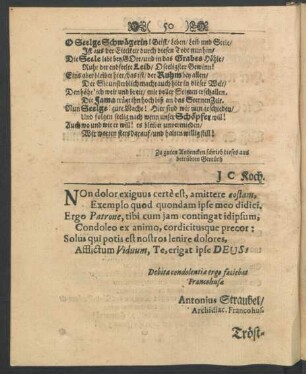 ( 50 )
O Seelge Schwägerin! Geist/ Leben/ Leib und Seele/
Ist aus der Eitelkeit durch diesen Tode nun hin/
Die Seele lebt bey GOtt und in des Grabes Höhle/
Ruht der entseelte Leib/ O seeligster Gewinn!
Eins aber bleibet hier/ das ist/ der Ruhm bey allen/
Der Sie unsterblich macht/ auch hier in dieser Welt/
Die Fama
Nun Seelge gute Nacht! Hier sind wir nun geschieden/
Und folgen seelig nach wenn unser Schöpfer will!
Auch wo und wie er will! es bleibt unvermieden/
Wir warten stets darauf/ und halten willig still!
Zu guten Andencken schrieb dieses aus
betrübten Gemüth
J C Koch.
NOn dolor exiguus certè est, amittere costam,
Exemplo quod quondam ipse meo didici,
Ergo Patrone, tibi cum jam contingat idipsum,
Condoleo ex animo, cordicitusque precor:
Solus qui potis est nostros lenire dolores,
Afflictum Viduum, Te, erigat ipse DEUS!
Debita condolentiæ ergo faciebat
Francohusa
Antonius Straubel/
Archidiac. Francohus.
Tröst-